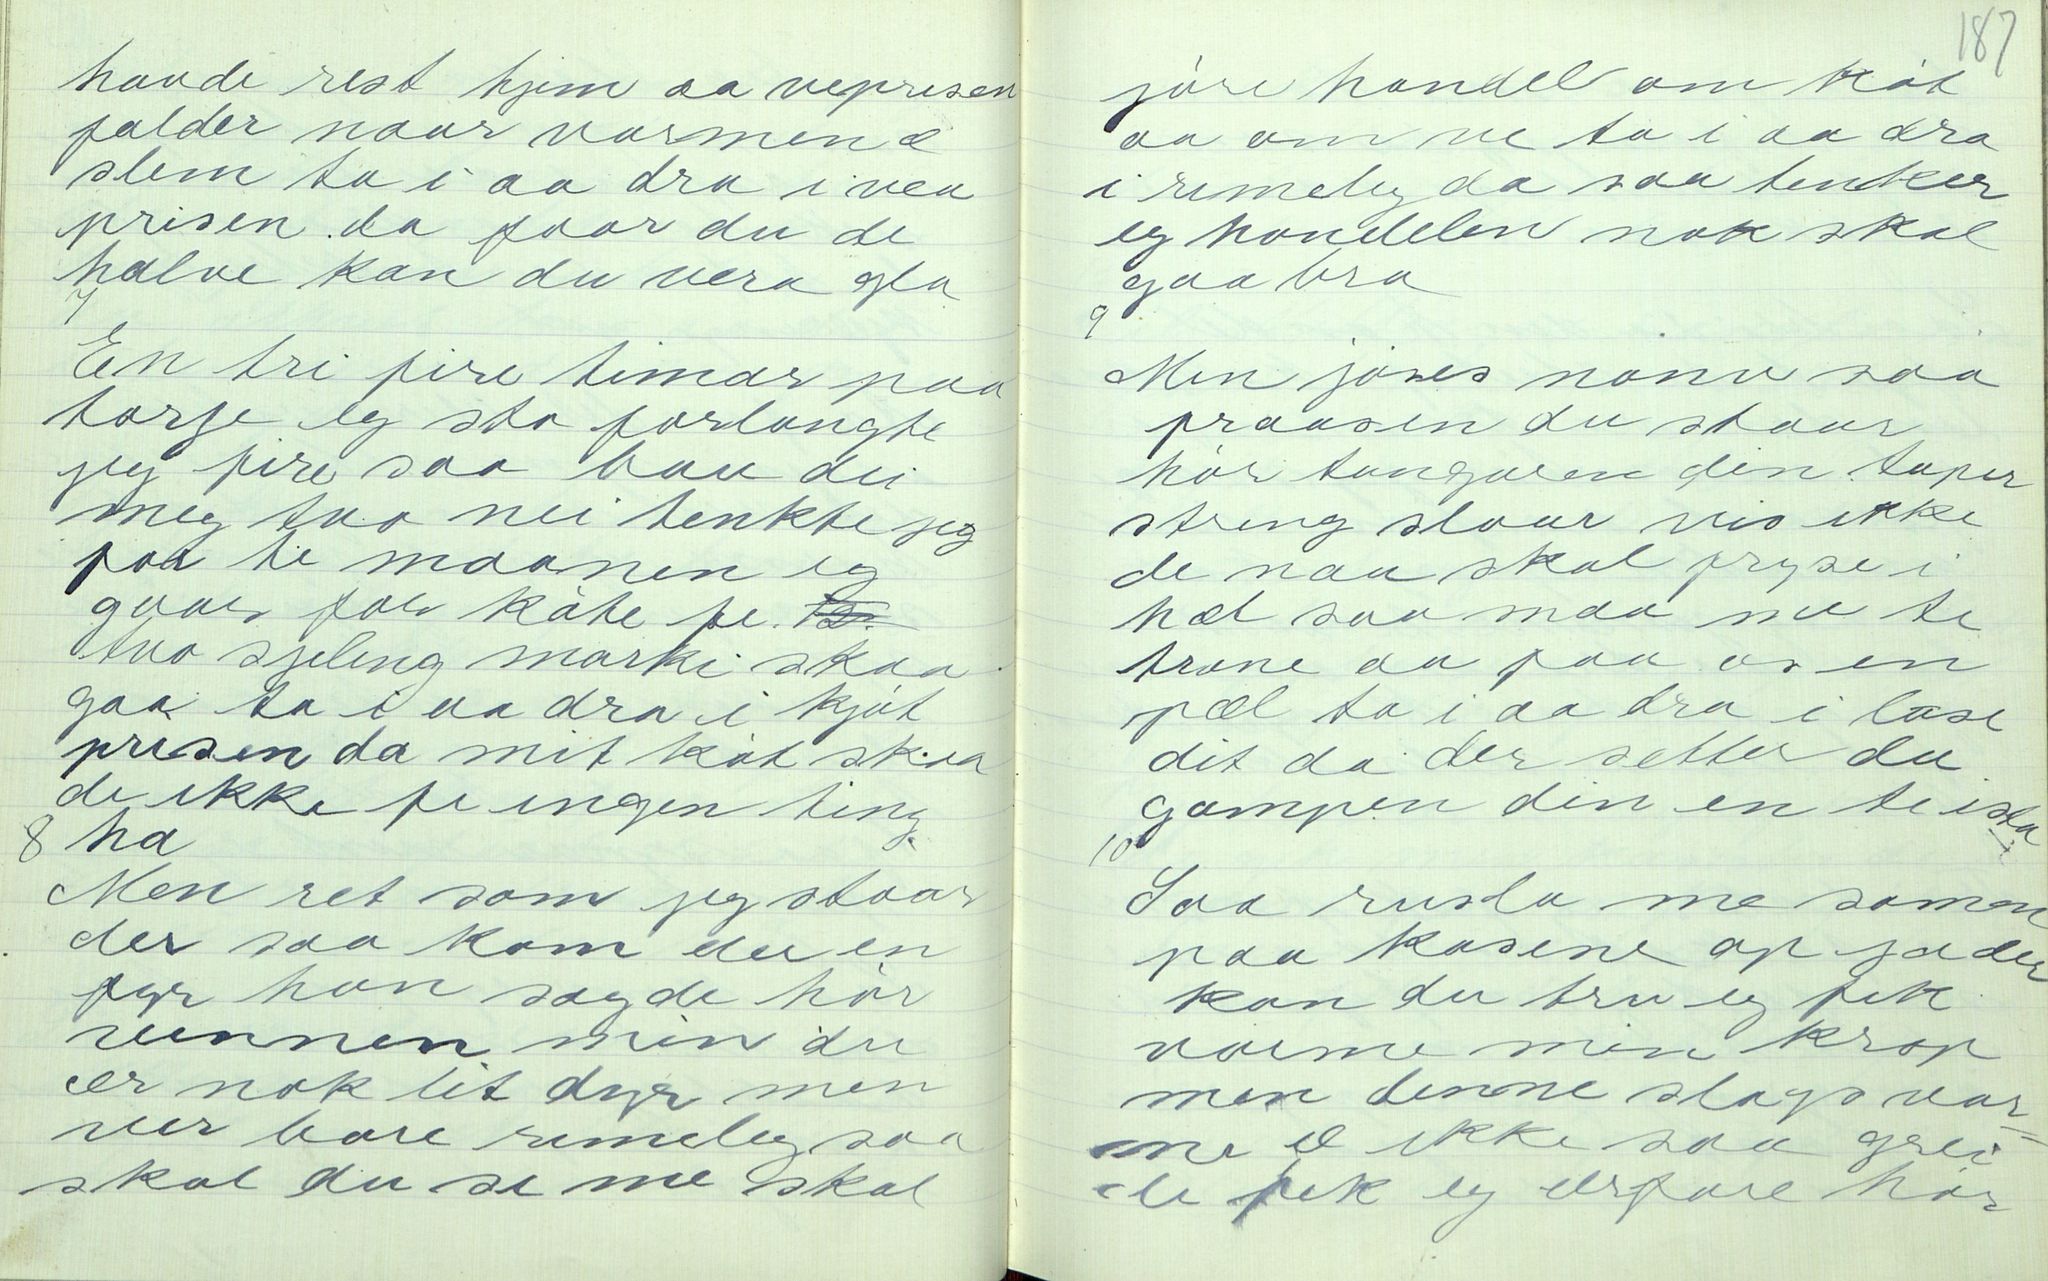 havde rest hjem aa veprisen
falder naar varmen æ
slem ta i aa dra i vea
prisen da faar du de
halve kan du vera gla
7
En tri fire timar paa
torje eg sto forlangte
jeg fire saa bau dei
meg tvo nei tenkte jeg
faa te maanen eg
gaar for kåte fe
tvo sjeling marki skaa
gaa ta i aa dra i kjøt
prisen da mit køt skaa
de ikke fe ingen ting
8 ha
Men ret som jeg staar
der saa kom der en
fyr han sagde hör
vennen min du
ær nok lit dyr men
ver bare rimelig saa
skal du se me skal
187
jöre handel om köt
aa om ve ta i aa dra
i rimelig da saa tenker
eg handelen nok skal
gaa bra
9
Men jöses nonu saa
fraasen du staar
hör tangaren din taper
streng slaar vis ikke
de naa skal fryse i
hæl saa maa nu te
trone aa faa os en
pæl ta i aa dra i lase
dit da der setter du
gampen din en te ista
10
Saa rusla me samen
paa kasene op ja der
kan du tru eg fek
varme min krop
men denne slags var=
me æ ikke saa grei
de fek eg erfare hör